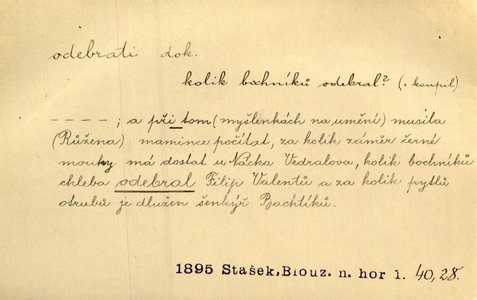 odebrati dok.
kolik bochníků odebral? (: koupil)
– – – – ; a při tom (myšlenkách na umění) musila
(Růžena) mamince počítat, za kolik záměr černé
mouky má dostat u Nácka Vedralova, kolik bochníků
chleba odebral Filip Valentů a za kolik pytlů
otrubů je dlužen šenkýř Pachtíků.
1895 Stašek, Blouz. n. hor 1. 40, 28.